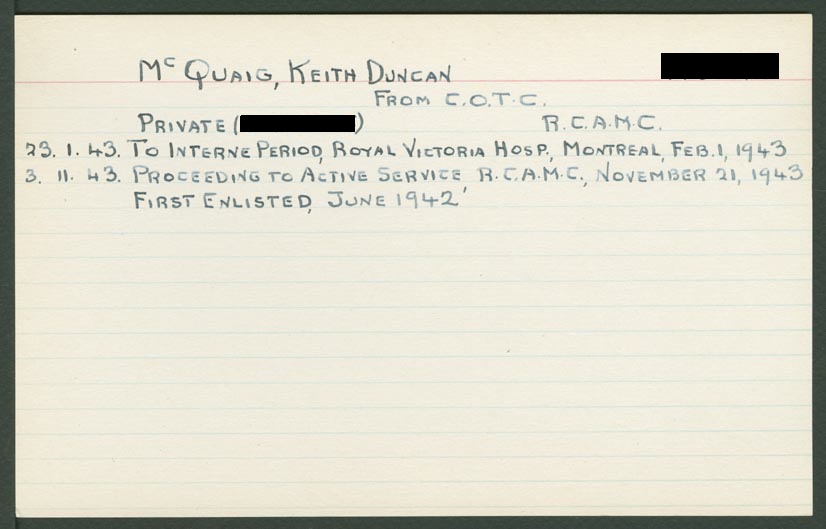 McQUAIG, KEITH DUNCAN
FROM C.O.T.C.
PRIVATE ( ) R.C.A.M.C.
23. 1. 43. TO INTERNE PERIOD, ROYAL VICTORIA HOSP., MONTREAL, FEB. 1, 1943
3. 11. 43. PROCEEDING TO ACTIVE SERVICE R.C.A.M.C., NOVEMBER 21, 1943
FIRST ENLISTED, JUNE 1942'